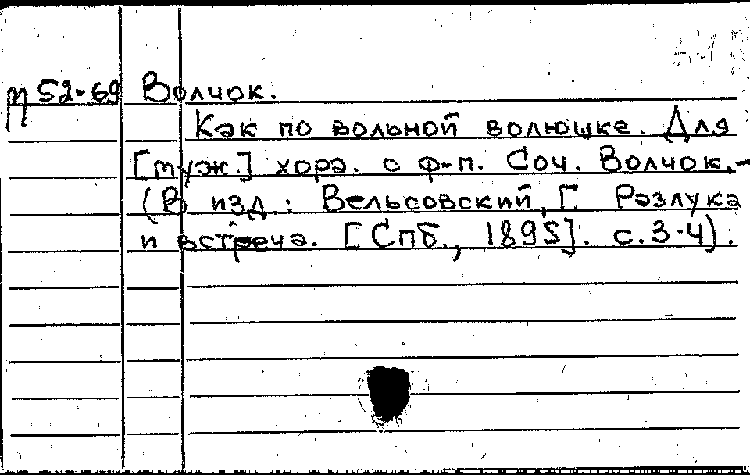 П 52-69 Волчок.
Как по вольной волюшке. Для
[муж.] хора. с ф-п. Соч. Волчок.-
(В изд.: Вельсовский, Г. Разлука
и встреча. [Спб., 1895]. с.3-4).